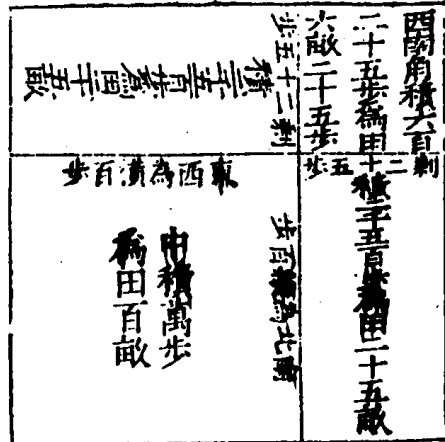 角積六百
二十五步爲田
六畝二十五步
剩二十五步
積二千五百步爲田二十五畝
剩二十五步
積二千五百步爲田二十五畝
東西爲廣百步
南北爲百步
中積萬步
爲田百畝